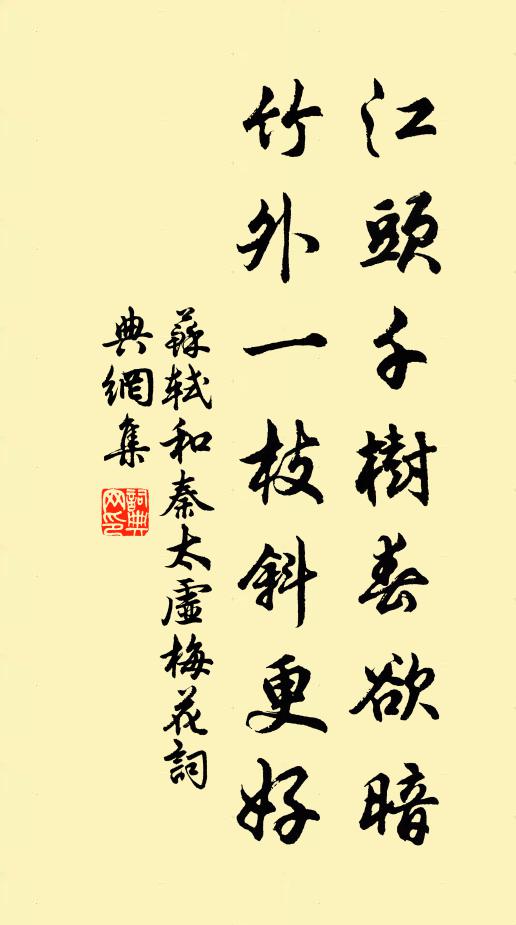 江頭千樹春欲暗
竹外一枝斜更好
蘇軾和秦太虛梅花詞
典網集
詞典
网印